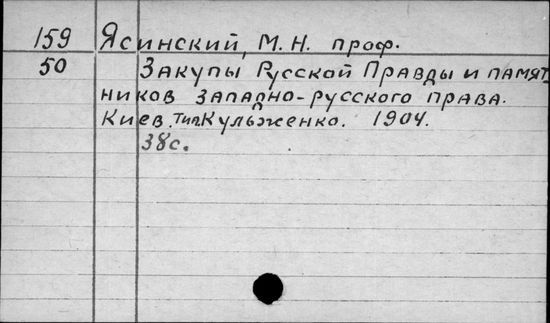 159 Ясинский, М. Н. проф.
50 Закупы Русской Правды и памят
ников западно-русского права.
Киев. Тип. Кульженко. 1904.
38 с.